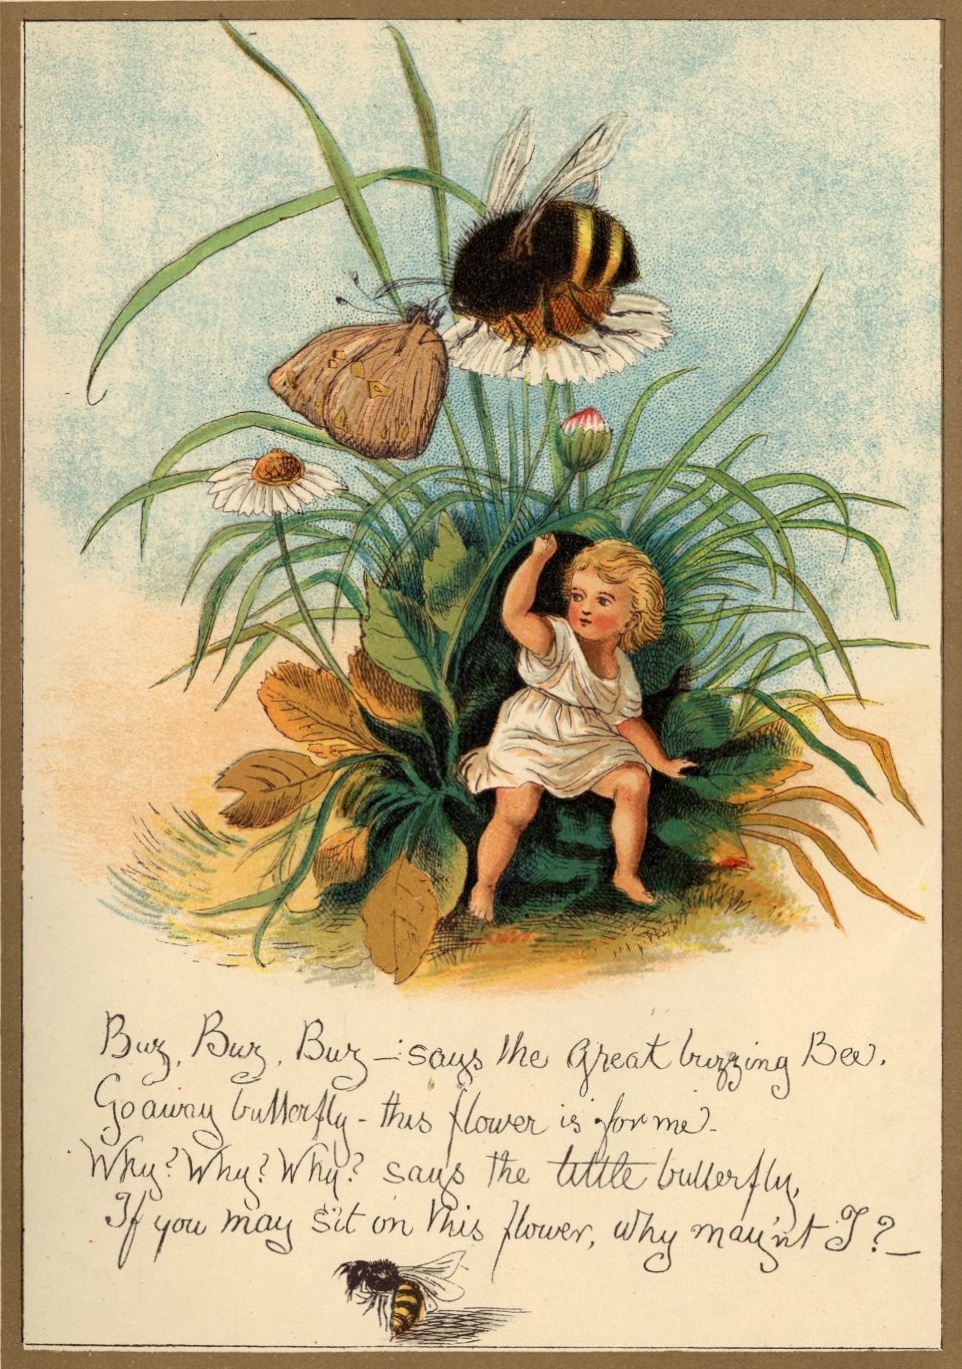 Buz, Buz, Buz —: says the Great buzzing Bee.
Go away butterfly - this flower is for me -
Why? Why? Why? says the little butterfly,
If you may sit on this flower, why may'nt I? —